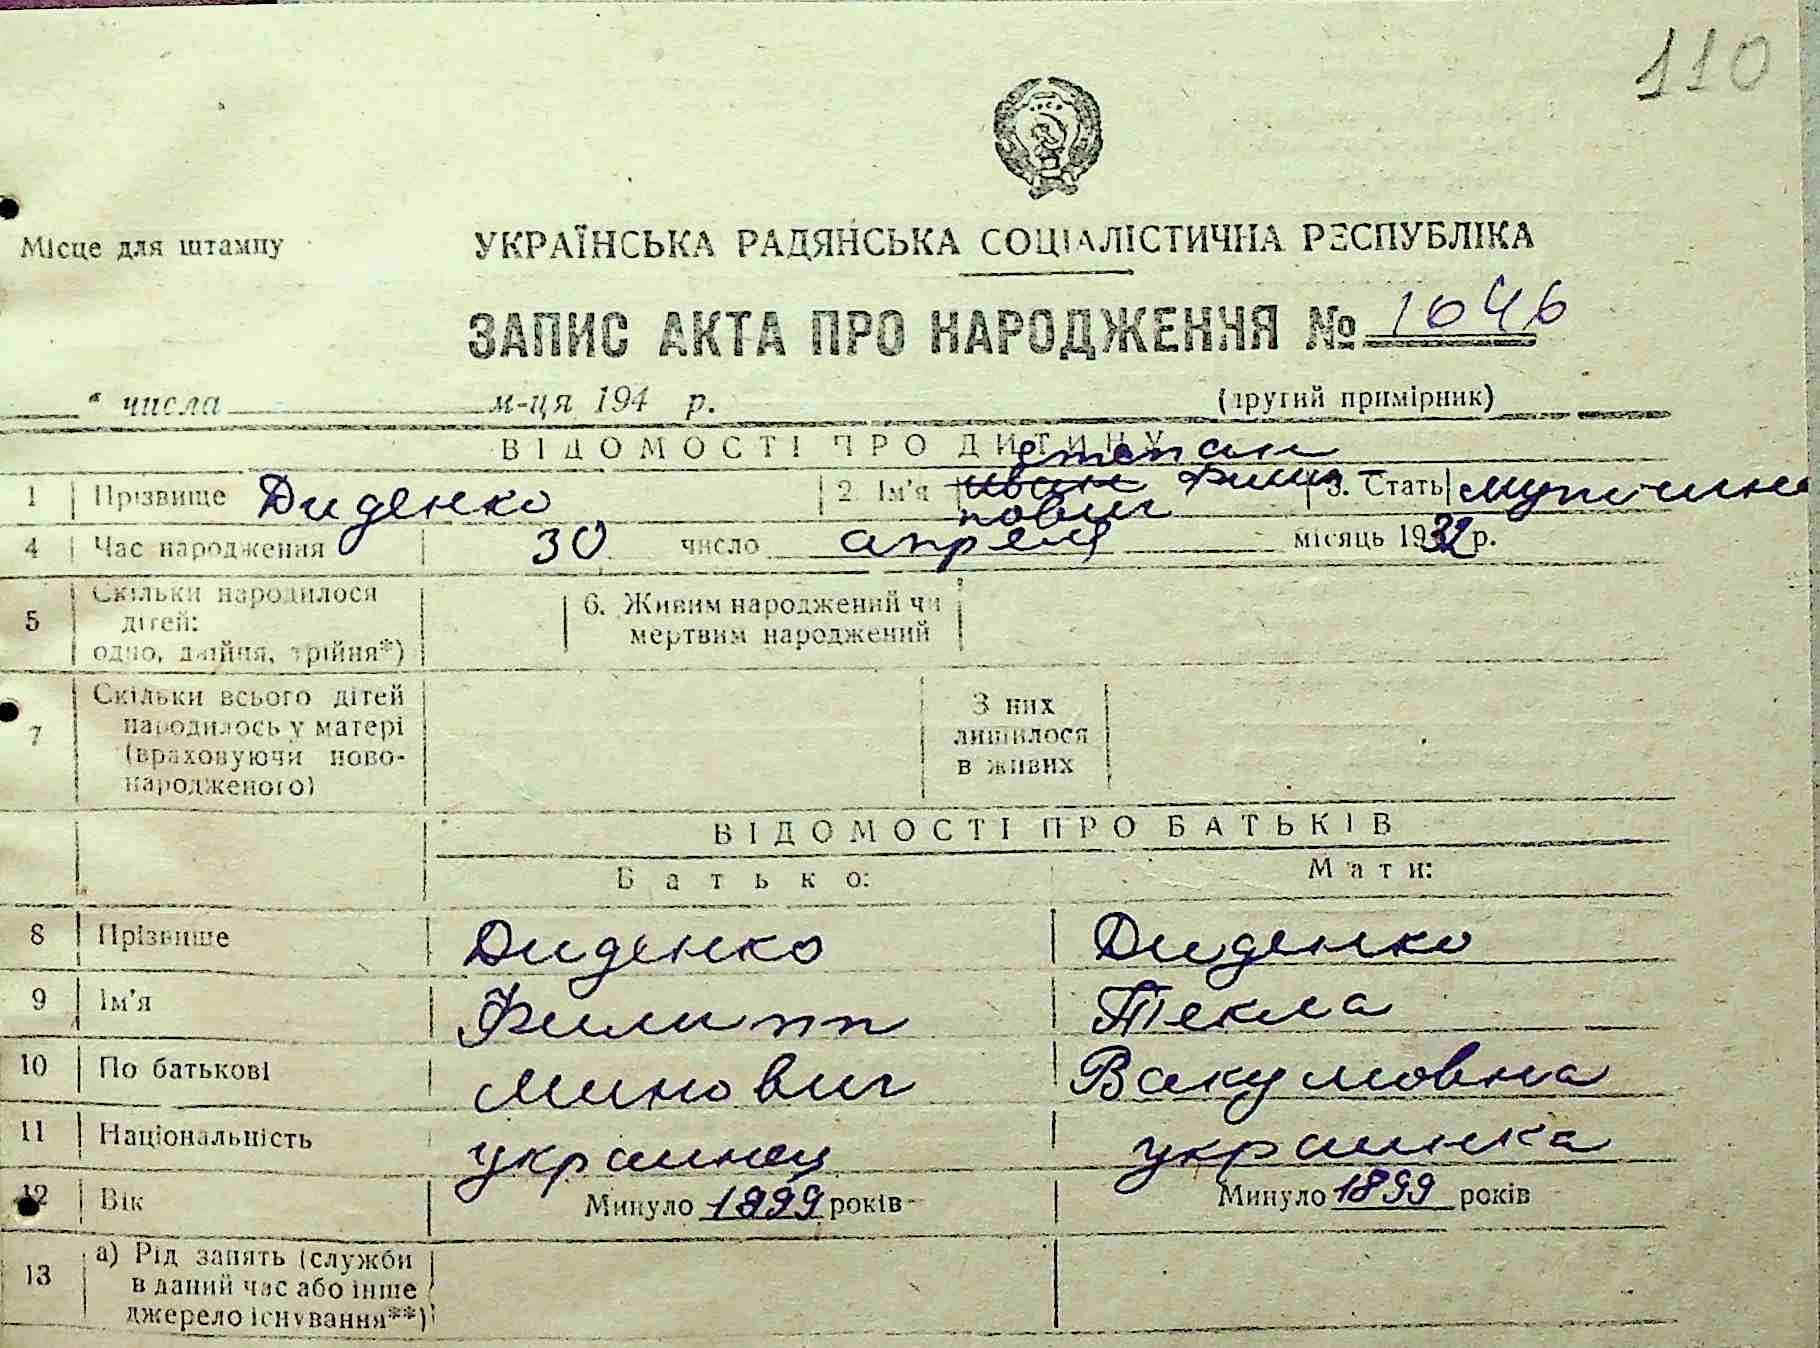 110
Місце для штампу
УКРАЇНСЬКА РАДЯНСЬКА СОЦІАЛІСТИЧНА РЕСПУБЛІКА
ЗАПИС АКТА ПРО НАРОДЖЕННЯ № 1046
" числа м-ця 194 р. (другий примірник)
ВІДОМОСТІ ПРО ДИТИНУ
степан
1 Прізвище Диденко 2. Ім'я иван Филип 3. Стать
пович
4 Час народження 30 число апреля місяць 1932 р.
5 Скільки народилося дітей: одно, двійня, трійня*)
6. Живим народжений чи мертвим народжений
7 Скільки всього дітей народилось у матері (враховуючи ново-народженого)
З них лишилося в живих
ВІДОМОСТІ ПРО БАТЬКІВ
Батько: Мати:
8 Прізвище Диденко Диденко
9 Ім'я Филипп Текла
10 По батькові Минович Вакумовна
11 Національність украинец украинка
12 Вік Минуло 1899 років Минуло 1899 років
13 а) Рід занять (служби в даний час або інше джерело існування**)